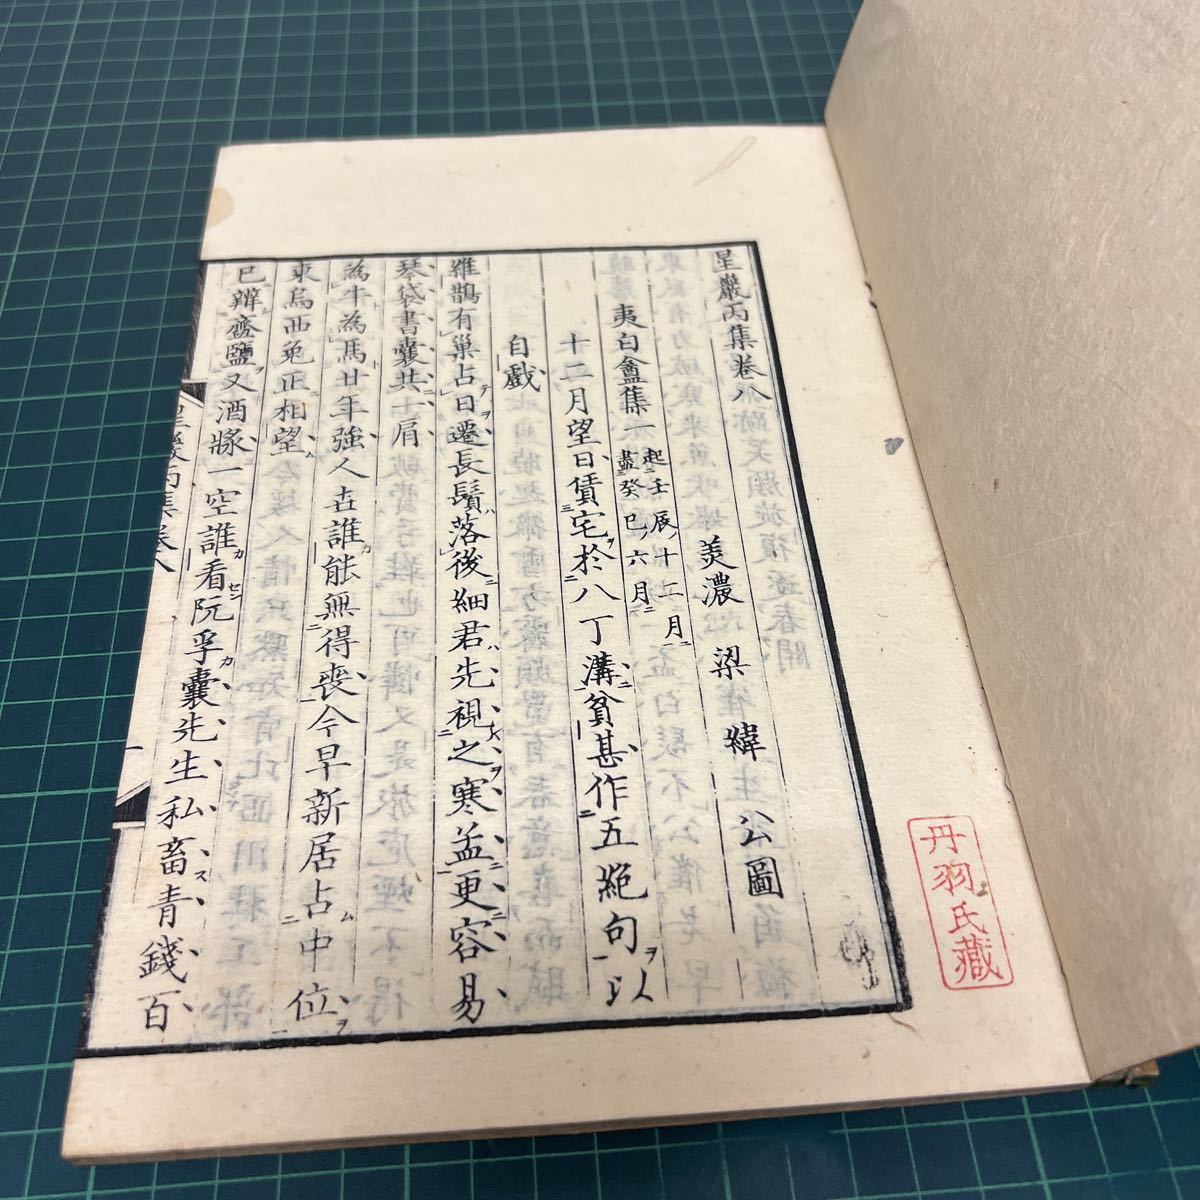 星巖丙集卷八
美濃 梁緯 公圖
夷白盦集一 起壬辰十二月
盡癸巳六月
十二月望日賃宅於八丁溝貧甚作五絕句以
自戲
維鵲有巢占日遷長鬚落後細君先視之寒孟更容易
琴袋書囊共一肩
為牛為馬廿年強人世誰能無得喪今早新居占中位
東烏西兔正相望
已辨齏鹽又酒漿一空誰看阮孚囊先生私畜青錢百
星巖丙集卷八
丹羽氏藏